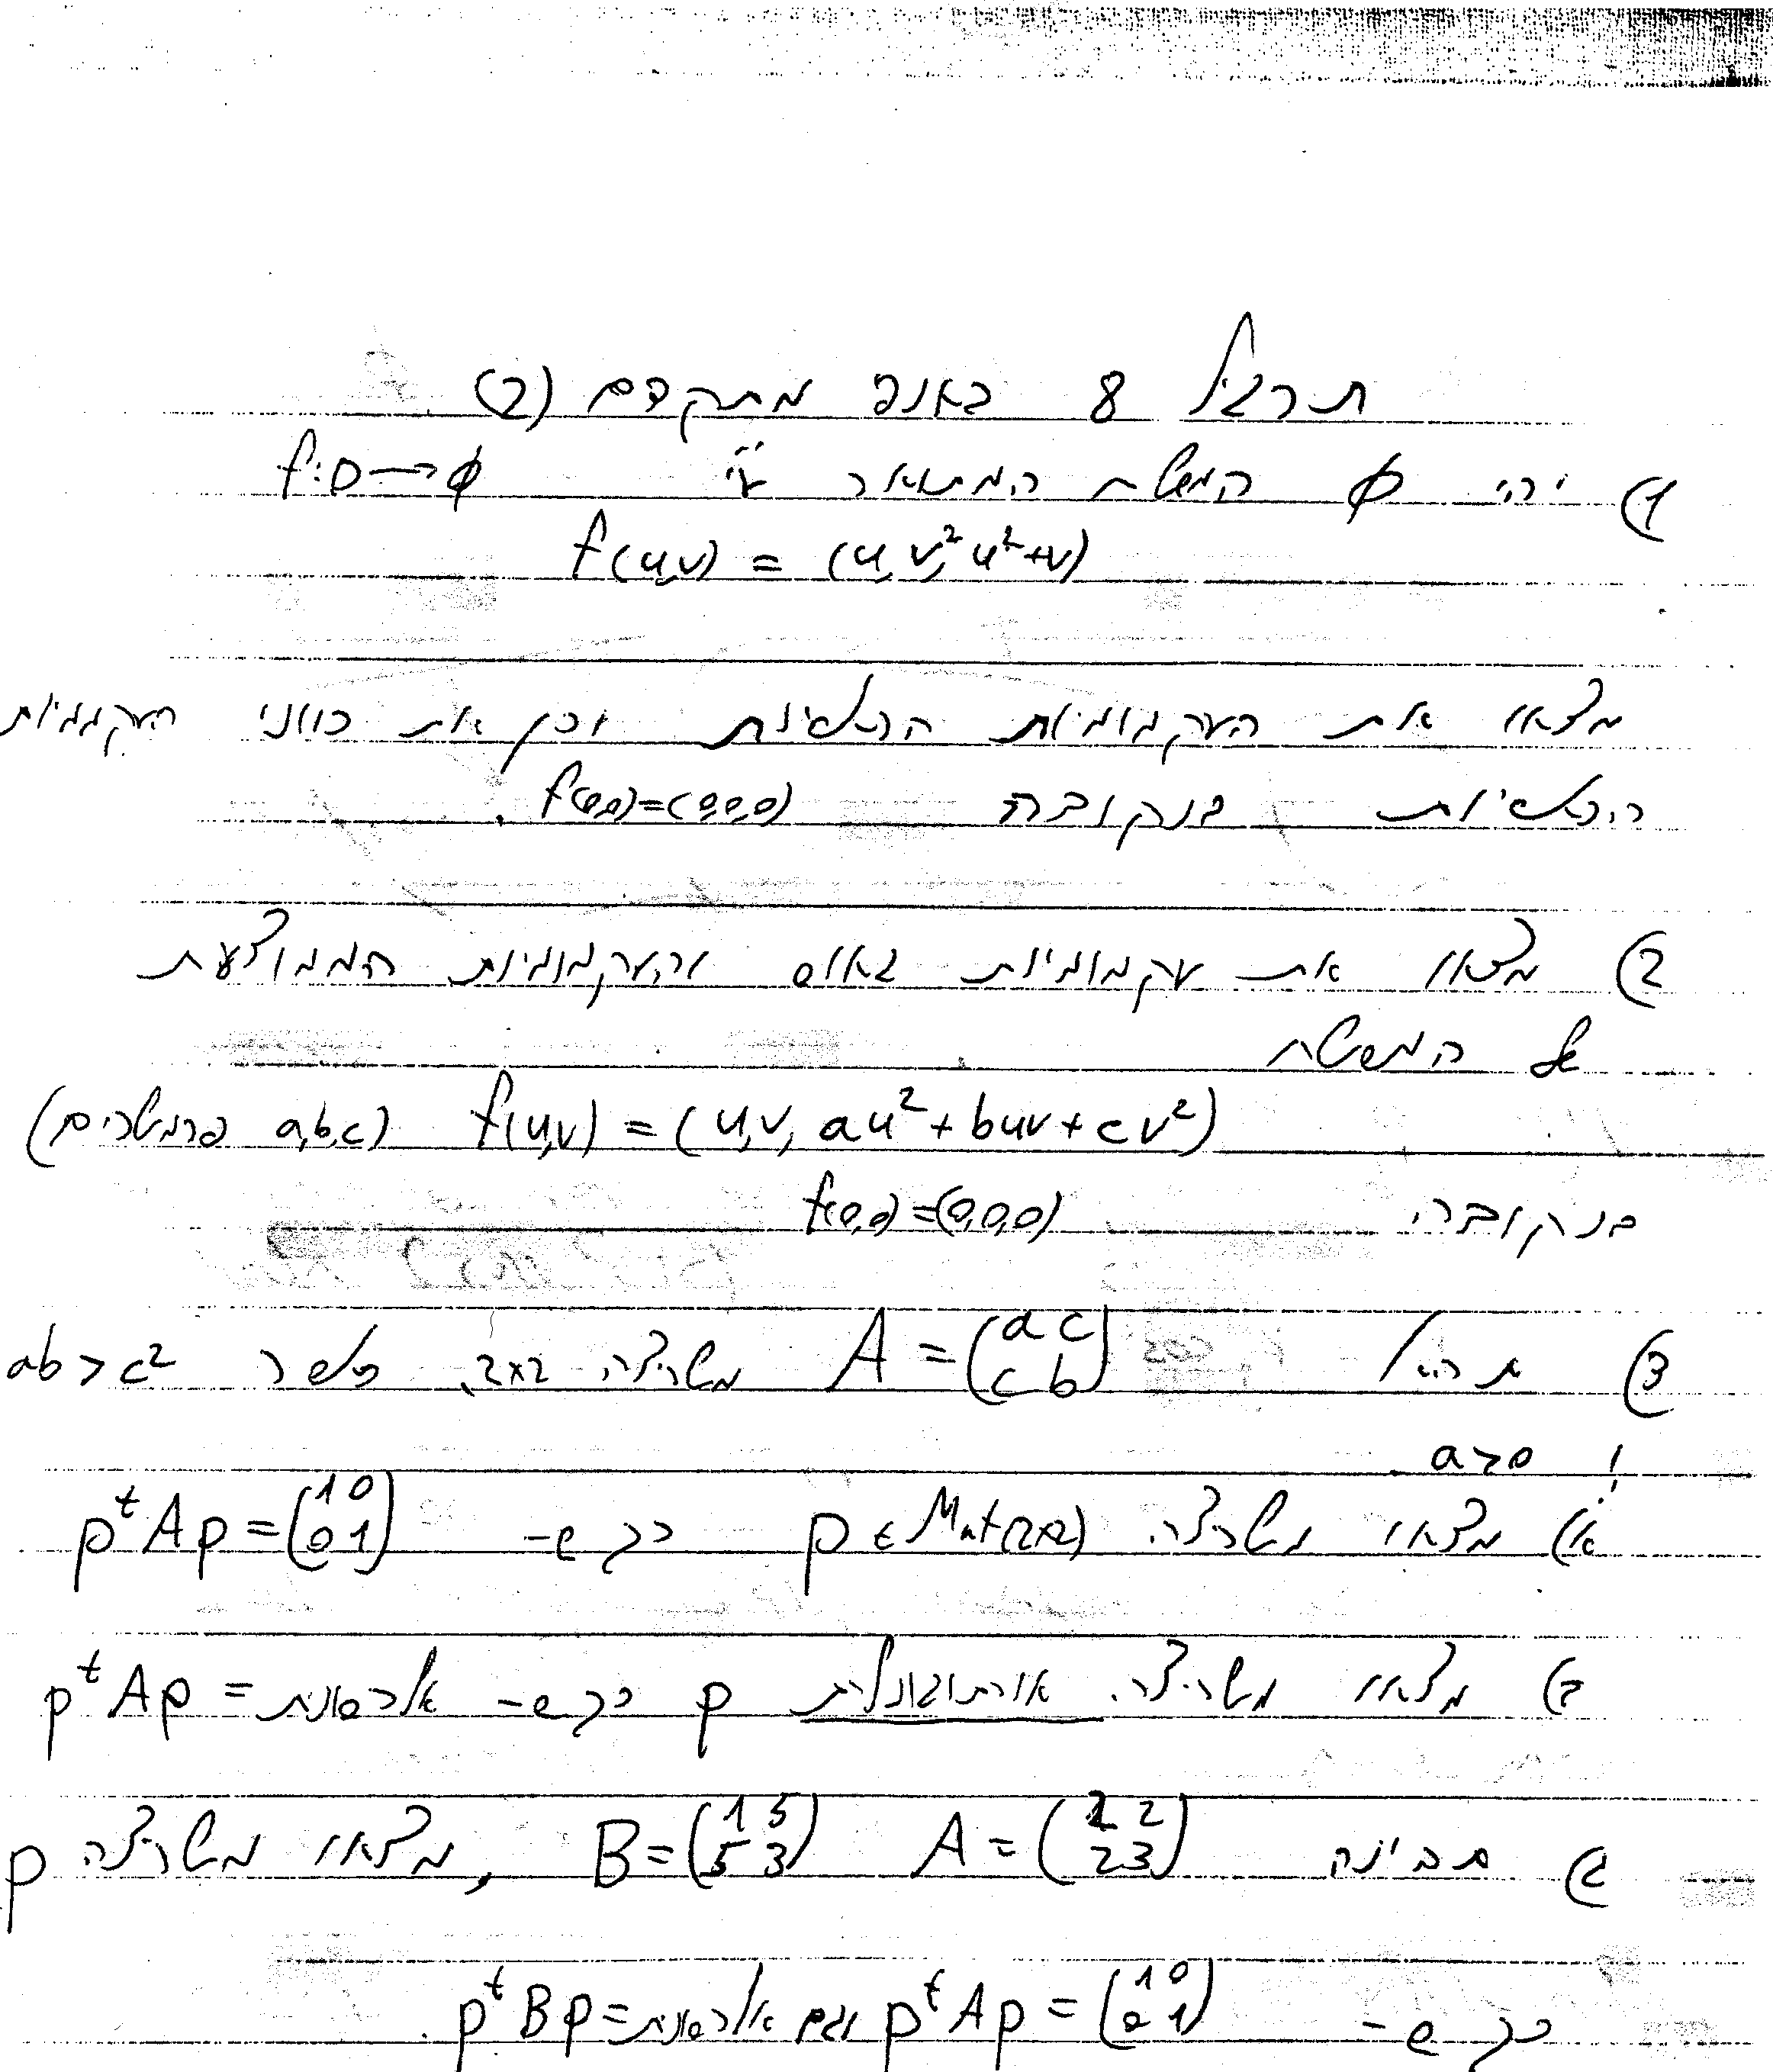 תרגיל 8 באנפ מתקדם (2)
1) יהי φ המשטח המתואר ע״י f:D→φ
f(u,v) = (u, v², u²+v)
מצאו את העקמומיות הראשיות וכן את כווני העקמומיות
הראשיות בנקודה f(0,0)=(0,0,0).
2) מצאו את עקמומיות גאוס והעקמומיות הממוצעת
של המשטח
f(u,v) = (u,v, au²+buv+cv²) (a,b,c פרמטרים)
בנקודה f(0,0)=(0,0,0)
3) תהא A = (a c / c b) מטריצה 2x2, כאשר ab>c²
ו a>0
א) מצאו מטריצה p ∈ Mat(2x2) כך ש- pᵗAp = (1 0 / 0 1)
ב) מצאו מטריצה אורתוגונלית p כך ש- אלכסונית = pᵗAp
ג) בהינתן A = (2 2 / 2 3) B = (1 5 / 5 3), מצאו מטריצה p
כך ש- pᵗAp = (1 0 / 0 1) וגם אלכסונית = pᵗBp.